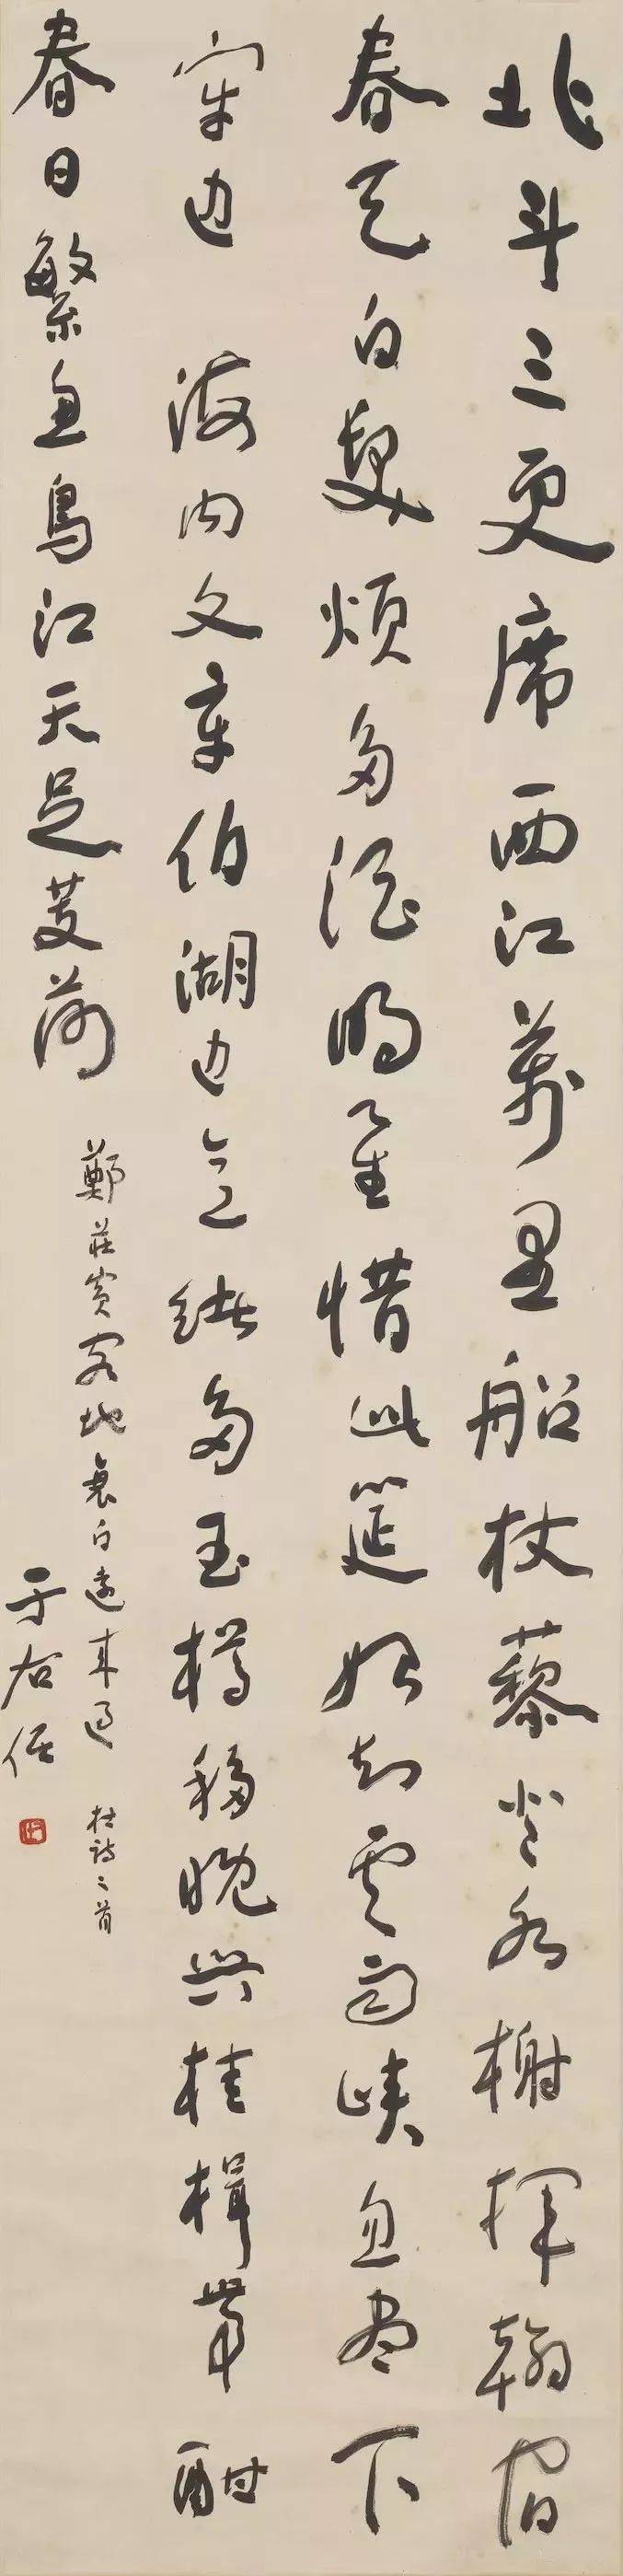 北斗三更席西江萬里船杖藜登水榭揮翰宿
春天白髮煩多酒明星惜此筵始知雲雨峽忽盡下
牢边 海內文章伯湖边意緒多玉樽移晚興桂楫帶酣
春日繁魚鳥江天足芰荷
鄭莊賓客地衰白遠來過 杜詩二首
于右任